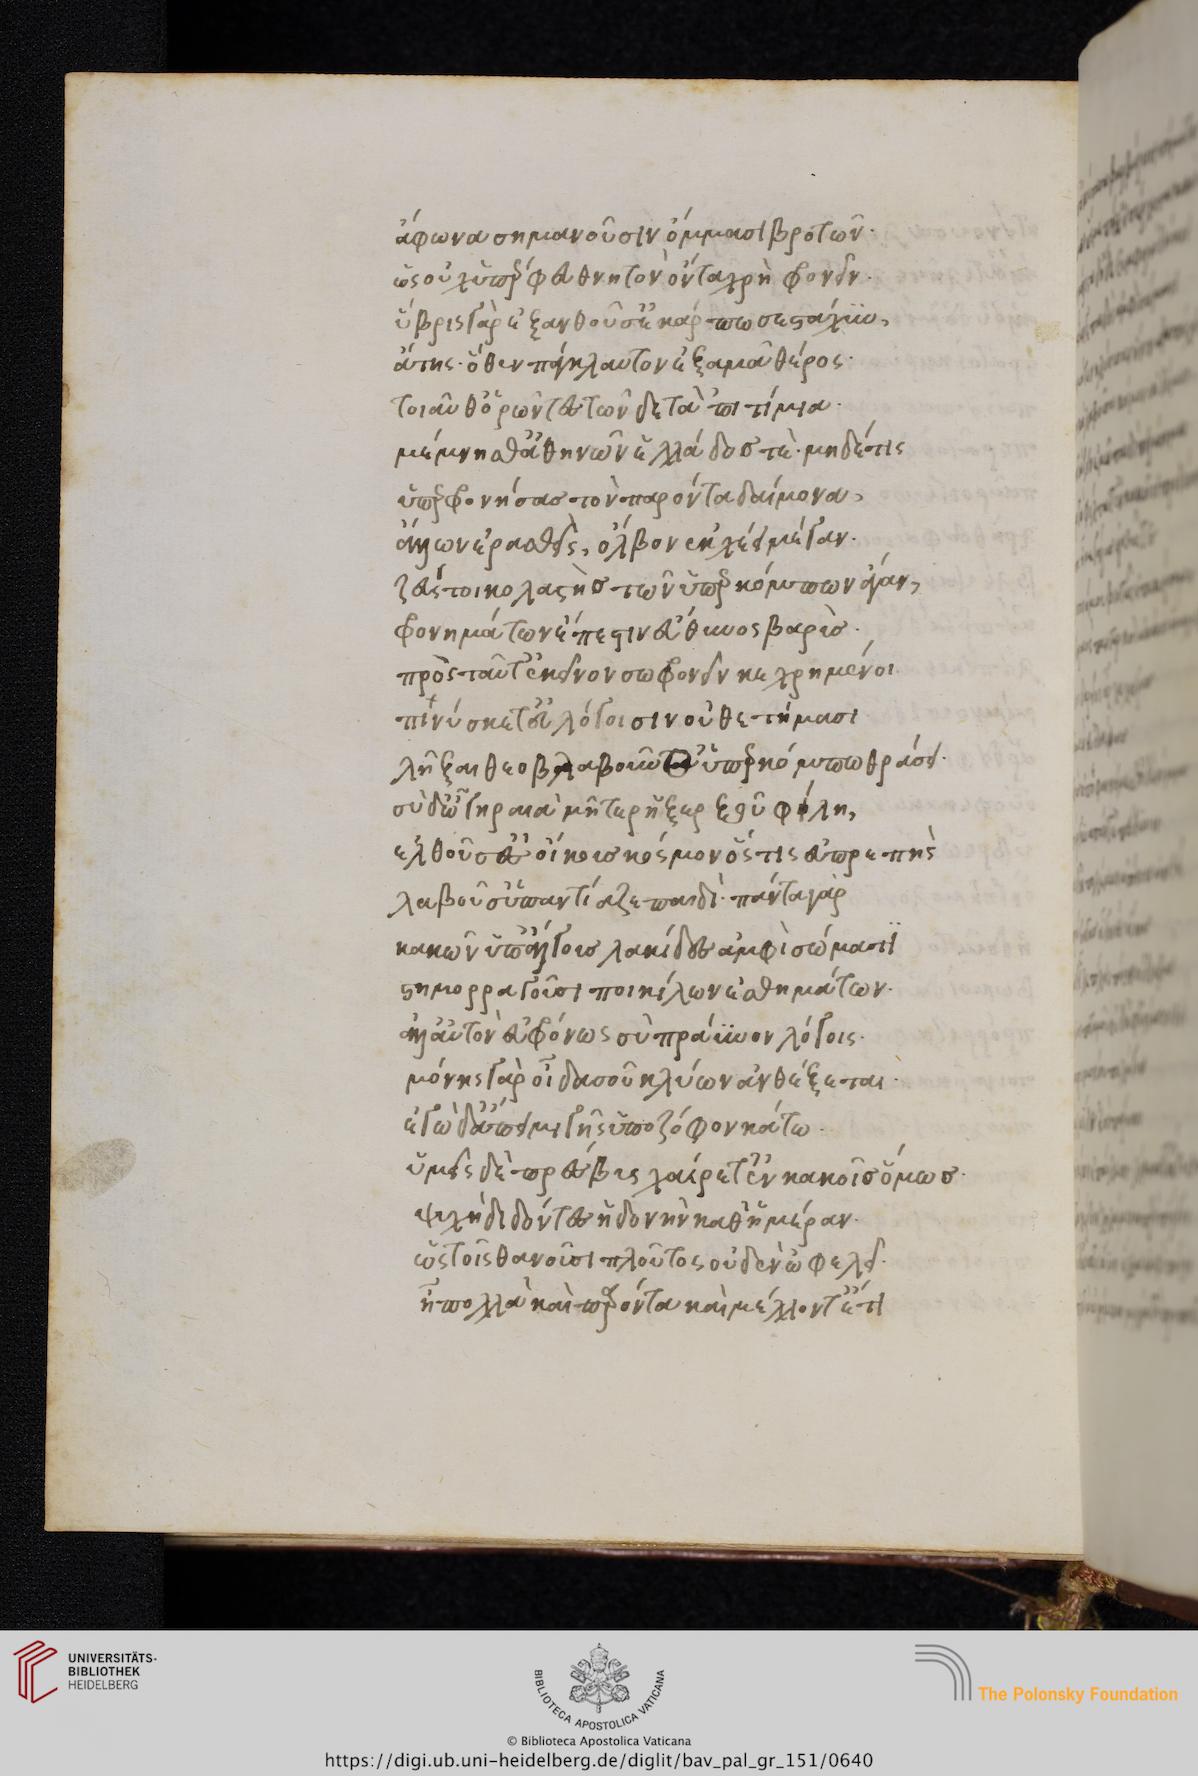 ἄφωνα σημανοῦσιν ὄμμασι βροτῶν·
ὡς οὐχ ὑπέρφευ θνητὸν ὄντα χρὴ φρονεῖν·
ὕβρις γὰρ ἐξανθοῦσ' ἐκάρπωσε στάχυν,
ἄτης· ὅθεν πάγκλαυτον ἐξαμᾶ θέρος·
τοιαῦθ' ὁρῶντες τῶνδε τὰ 'πιτίμια·
μέμνησθ' ἀθηνῶν ἑλλάδος τὲ· μηδέ τις
ὑπερφρονήσας τὸν παρόντα δαίμονα,
ἄλλων ἐρασθεὶς, ὄλβον ἐκχέει μέγαν·
ζεύς τοι κολαστὴς τῶν ὑπερκόμπων ἄγαν,
φρονημάτων ἔπεστιν εὔθυνος βαρὺς·
πρὸς ταῦτ' ἐκεῖνον σωφρονεῖν κεχρημένοι
πινύσκετ' εὐλόγοισι νουθετήμασι
λῆξαι θεοβλαβοῦνθ' ὑπερκόμπω θράσει·
σὺ δ' ὦ γηραιὰ μῆτερ ἡ ξέρξου φίλη,
ἐλθοῦσ' ἐς οἴκους κόσμον ὅστις εὐπρεπὴς
λαβοῦσ' ὑπαντίαζε παιδὶ· πάντα γὰρ
κακῶν ὑπ' ἄλγους λακίδες ἀμφὶ σώμασι
στημορραγοῦσι ποικίλων ἐσθημάτων·
ἀλλ' αὐτὸν εὐφρόνως σὺ πράϋνον λόγοις·
μόνης γὰρ οἶδα σοῦ κλύων ἀνθέξεται·
ἐγὼ δ' ἄπειμι γῆς ὑπὸ ζόφον κάτω·
ὑμεῖς δὲ πρέσβεις χαίρετ' ἐν κακοῖς ὅμως·
ψυχὴ διδόντες ἡδονὴν καθ' ἡμέραν·
ὡς τοῖς θανοῦσι πλοῦτος οὐδὲν ὠφελεῖ·
ἦ πολλὰ καὶ παρόντα καὶ μέλλοντ' ἔτι
UNIVERSITÄTS-
BIBLIOTHEK
HEIDELBERG
BIBLIOTECA APOSTOLICA VATICANA
The Polonsky Foundation
© Biblioteca Apostolica Vaticana
https://digi.ub.uni-heidelberg.de/diglit/bav_pal_gr_151/0640